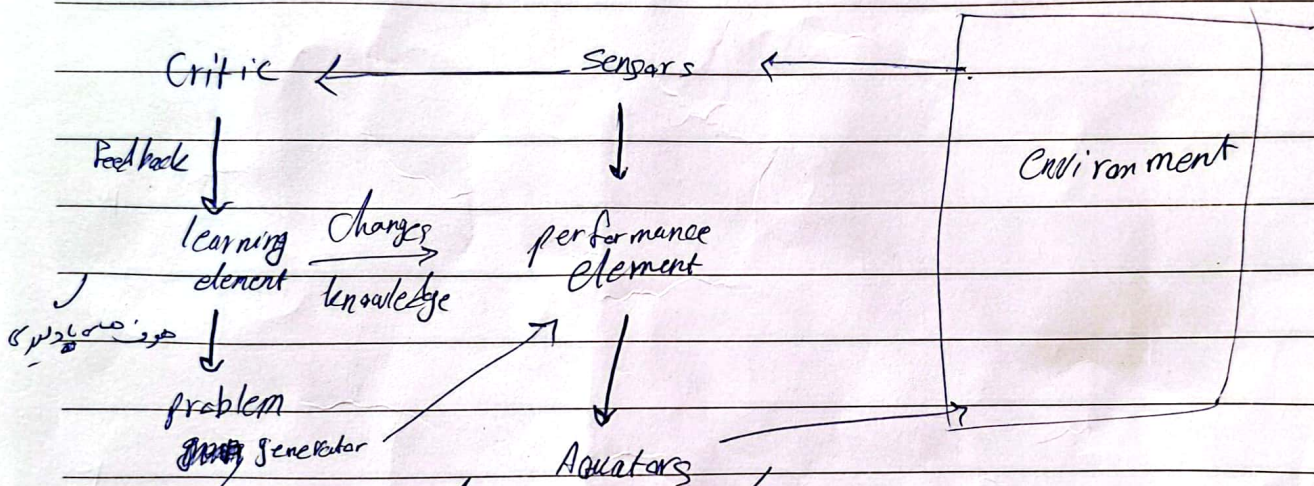 Critic
Sensors
Feedback
environment
learning
element
Changes
knowledge
performance
element
problem
generator
Aquators